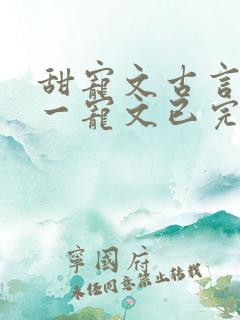 甜寵文古言
一寵文已完
寧國府
未经同意禁止转载